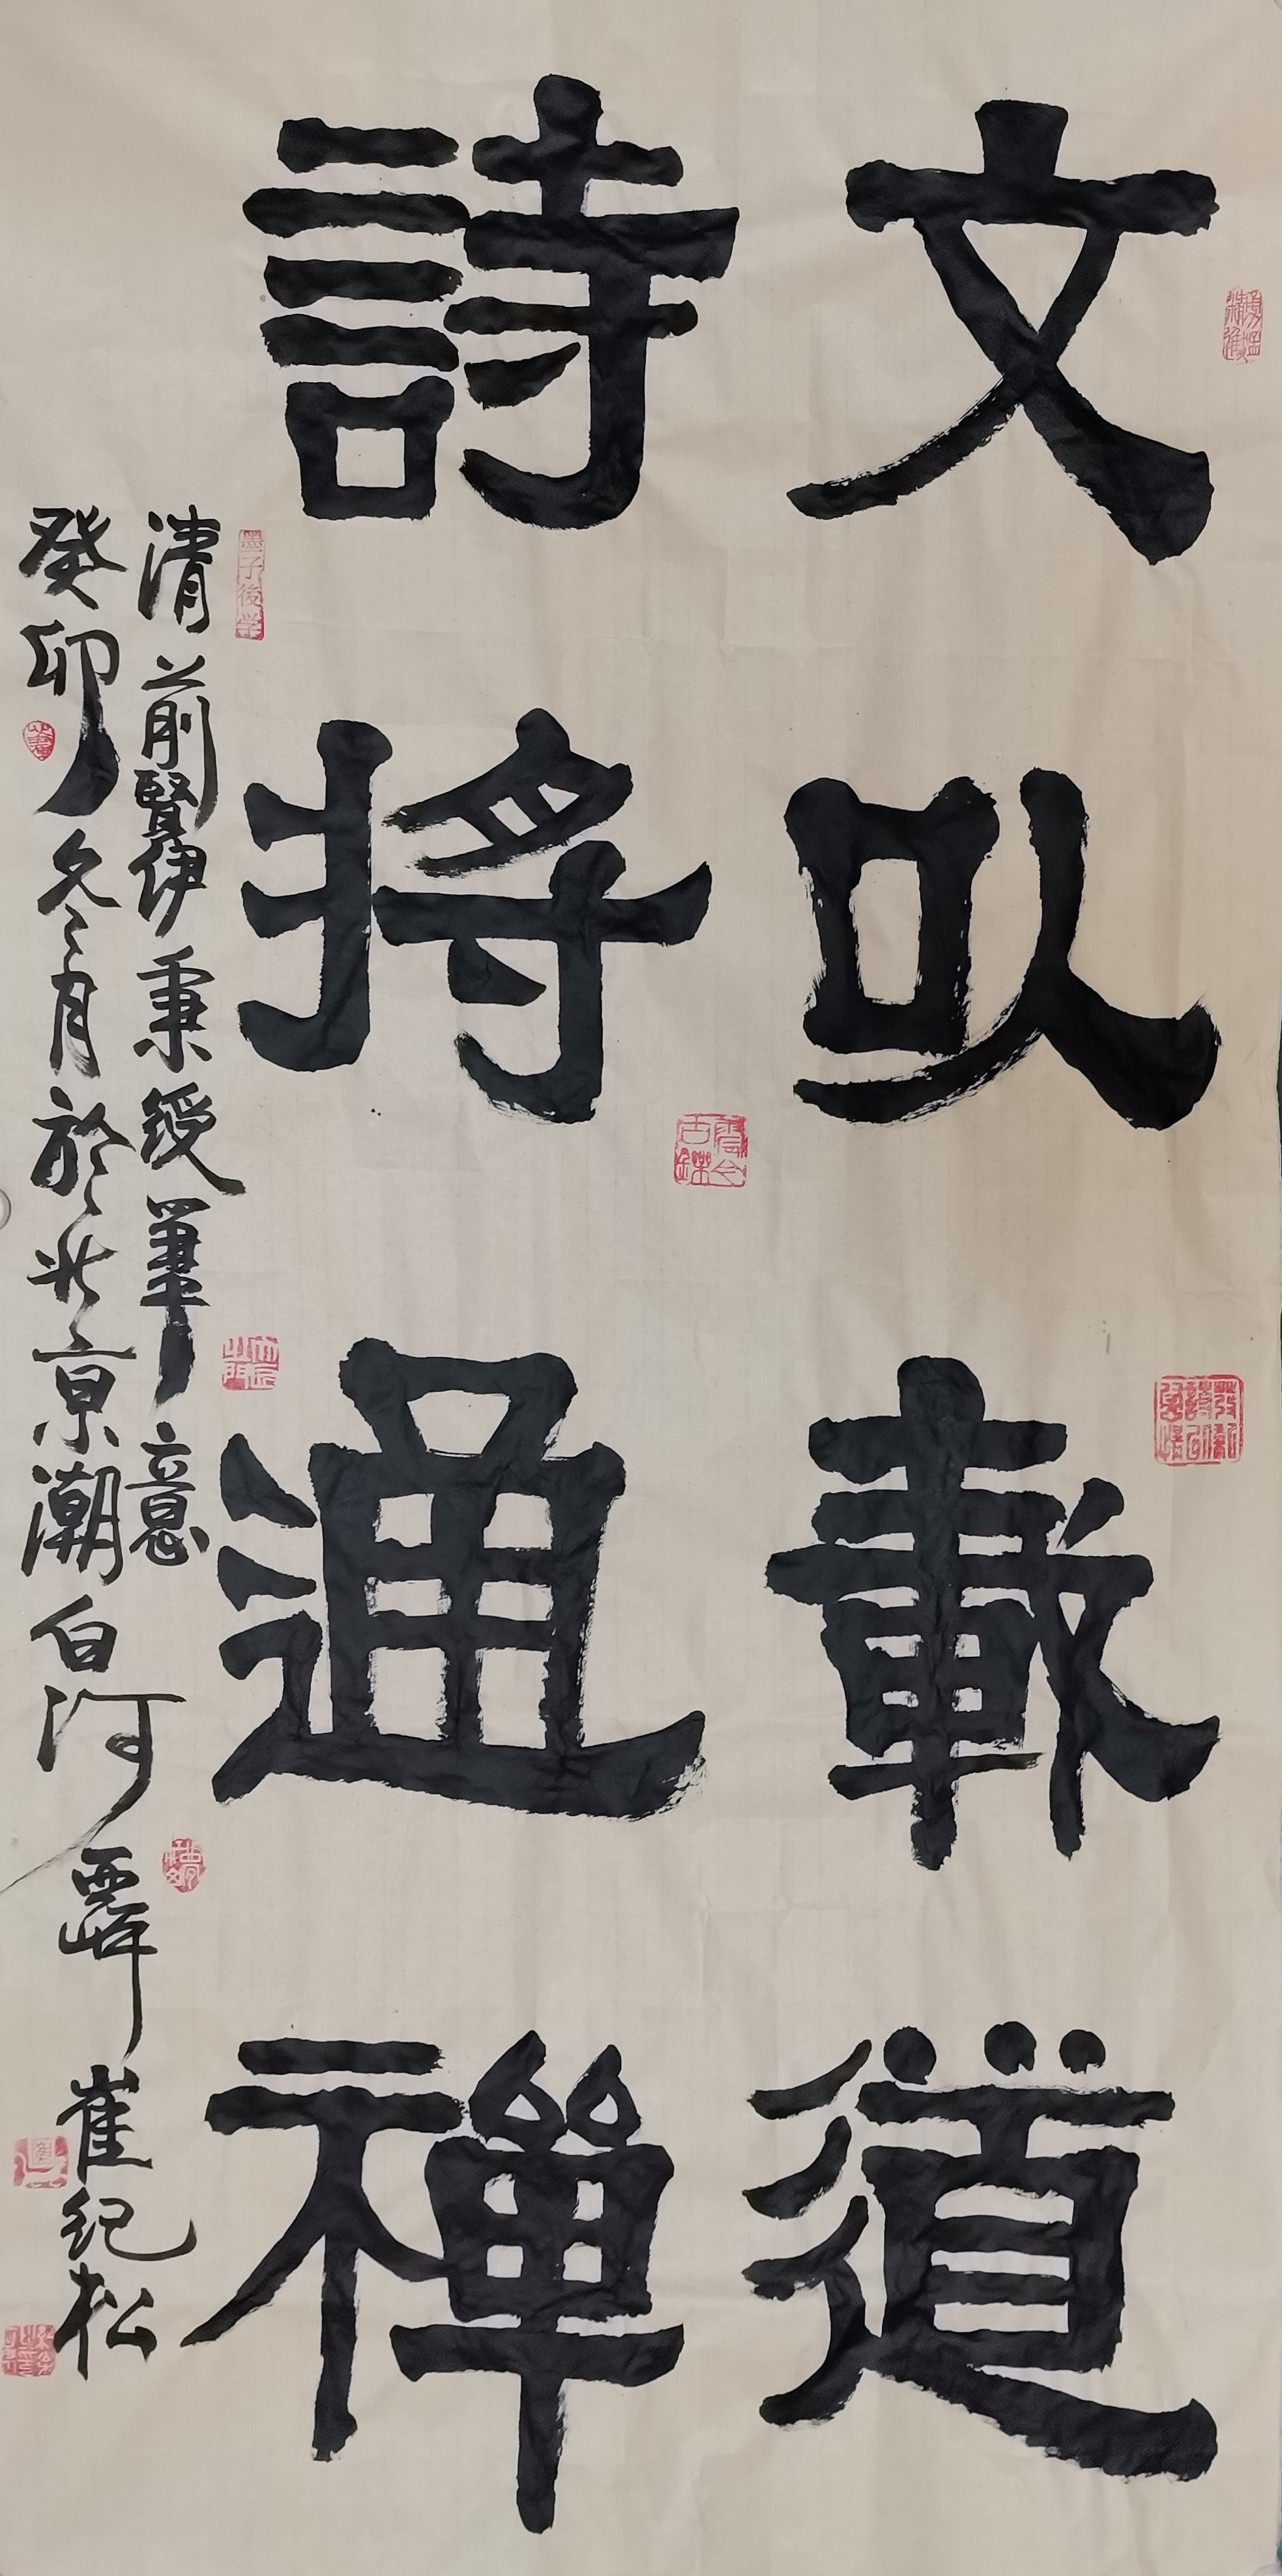 文以載道
詩將通禪
清前賢伊秉綬筆意
癸卯冬月於北京潮白河
崔纪松
墨子後学